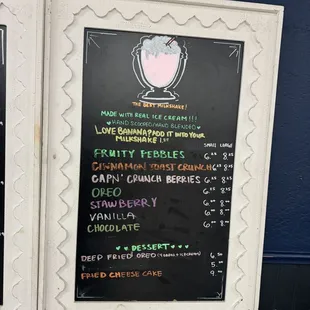 THE BEST MILKSHAKE!
MADE WITH REAL ICE CREAM!!!
HAND SCOOPED/HAND BLENDED
LOVE BANANA? ADD IT INTO YOUR
MILKSHAKE
SMALL LARGE
FRUITY PEBBLES 6 8
CINNAMON TOAST CRUNCH 6 8
CAPN' CRUNCH BERRIES 6 8
OREO 6 8
STAWBERRY 6 8
VANILLA 6 8
CHOCOLATE 6 8
DESSERT
DEEP FRIED OREO 6
5
FRIED CHEESE CAKE 9